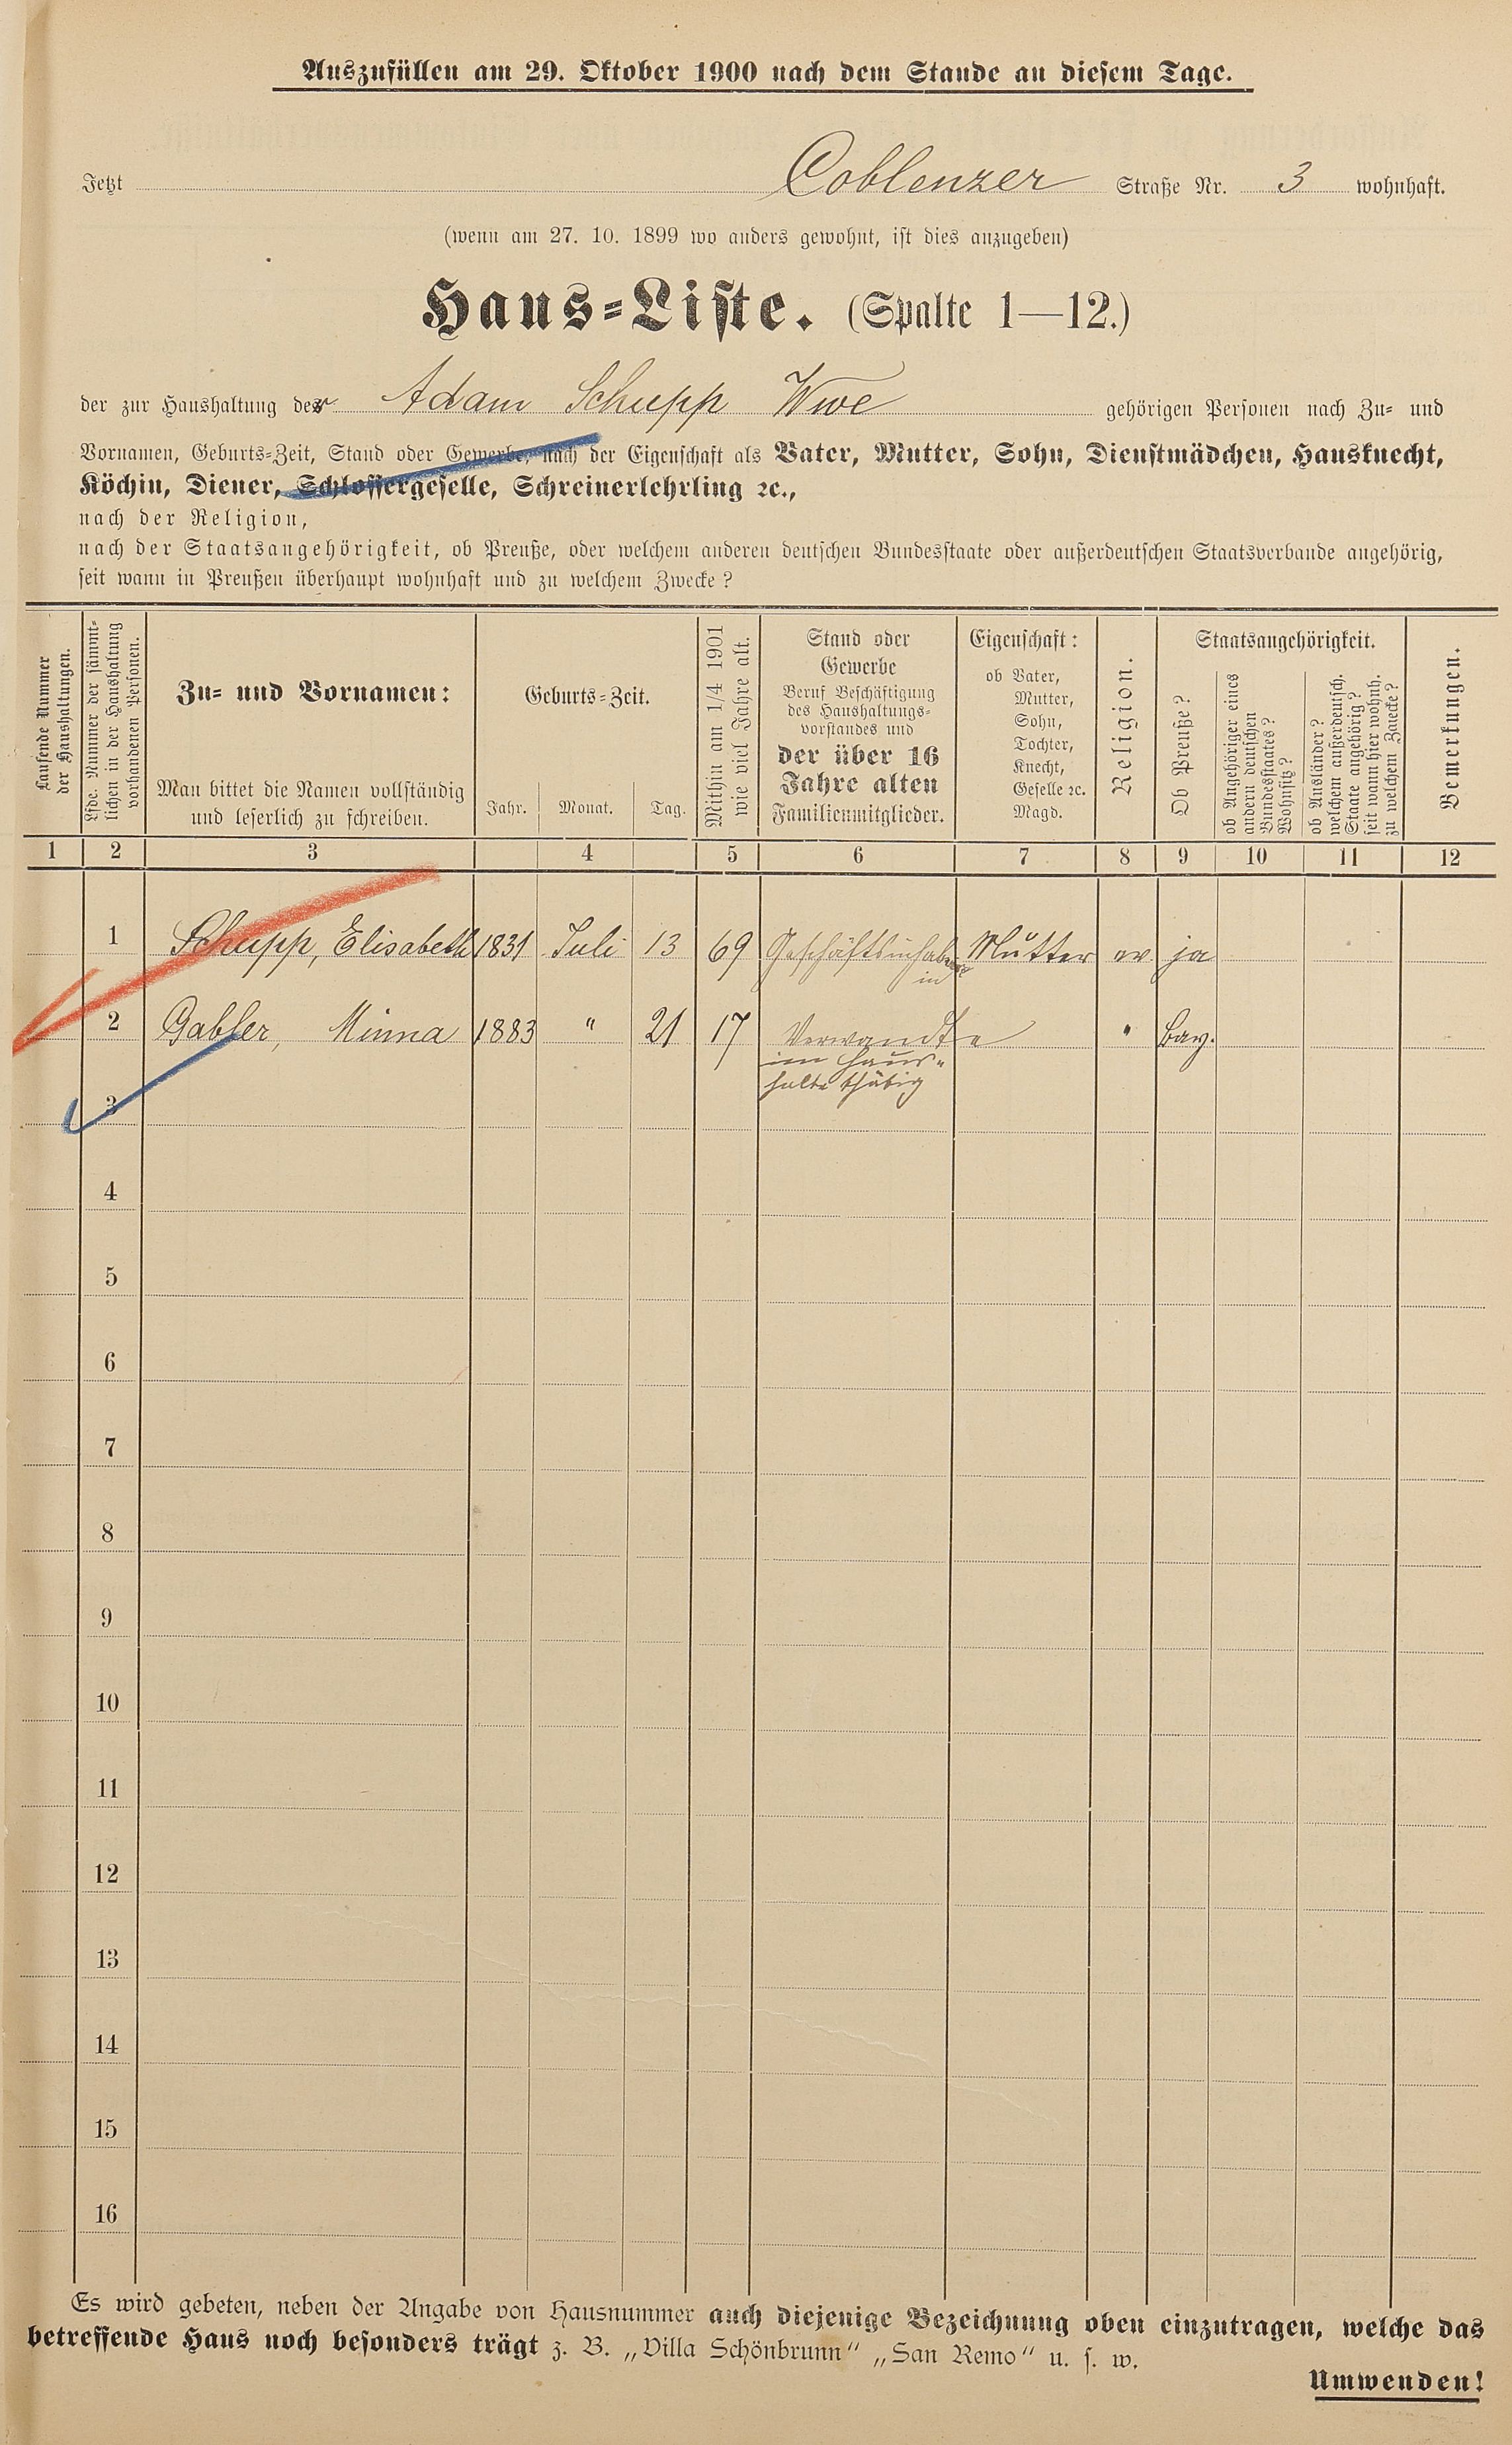 Auszufüllen am 29. Oktober 1900 nach dem Stande an diesem Tage.
Jetzt Coblenzer Straße Nr. 3 wohnhaft.
(wenn am 27. 10. 1899 wo anders gewohnt, ist dies anzugeben)
Haus-Liste. (Spalte 1—12.)
der zur Haushaltung der Adam Schupp Wwe gehörigen Personen nach Zu- und
Vornamen, Geburts-Zeit, Stand oder Gewerbe, nach der Eigenschaft als Vater, Mutter, Sohn, Dienstmädchen, Hausknecht,
Köchin, Diener, Schlossergeselle, Schreinerlehrling ꝛc.,
nach der Religion,
nach der Staatsangehörigkeit, ob Preuße, oder welchem anderen deutschen Bundesstaate oder außerdeutschen Staatsverbande angehörig,
seit wann in Preußen überhaupt wohnhaft und zu welchem Zwecke?
Laufende Nummer
der Haushaltungen.
Lfde. Nummer der sämmt-
lichen in der Haushaltung
vorhandenen Personen.
Zu- und Vornamen:
Man bittet die Namen vollständig
und leserlich zu schreiben.
Geburts-Zeit.
Jahr. Monat. Tag.
Mithin am 1/4 1901
wie viel Jahre alt.
Stand oder
Gewerbe
Beruf Beschäftigung
des Haushaltungs-
vorstandes und
der über 16
Jahre alten
Familienmitglieder.
Eigenschaft:
ob Vater,
Mutter,
Sohn,
Tochter,
Knecht,
Geselle ꝛc.
Magd.
Religion.
Staatsangehörigkeit.
Ob Preuße?
ob Angehöriger eines
andern deutschen
Bundesstaates?
Wohnsitz?
ob Ausländer?
welchem außerdeutsch.
Staate angehörig?
seit wann hier wohnh.
zu welchem Zwecke?
Bemerkungen.
1 2 3 4 5 6 7 8 9 10 11 12
1 Schupp, Elisabeth 1831 Juli 13 69 Geschäftsinhaber Mutter ev. ja
in
2 Gabler, Minna 1883 " 21 17 Verwandte " Bay.
im Haus-
halte thätig
3
4
5
6
7
8
9
10
11
12
13
14
15
16
Es wird gebeten, neben der Angabe von Hausnummer auch diejenige Bezeichnung oben einzutragen, welche das
betreffende Haus noch besonders trägt z. B. „Villa Schönbrunn" „San Remo" u. s. w.
Umwenden!